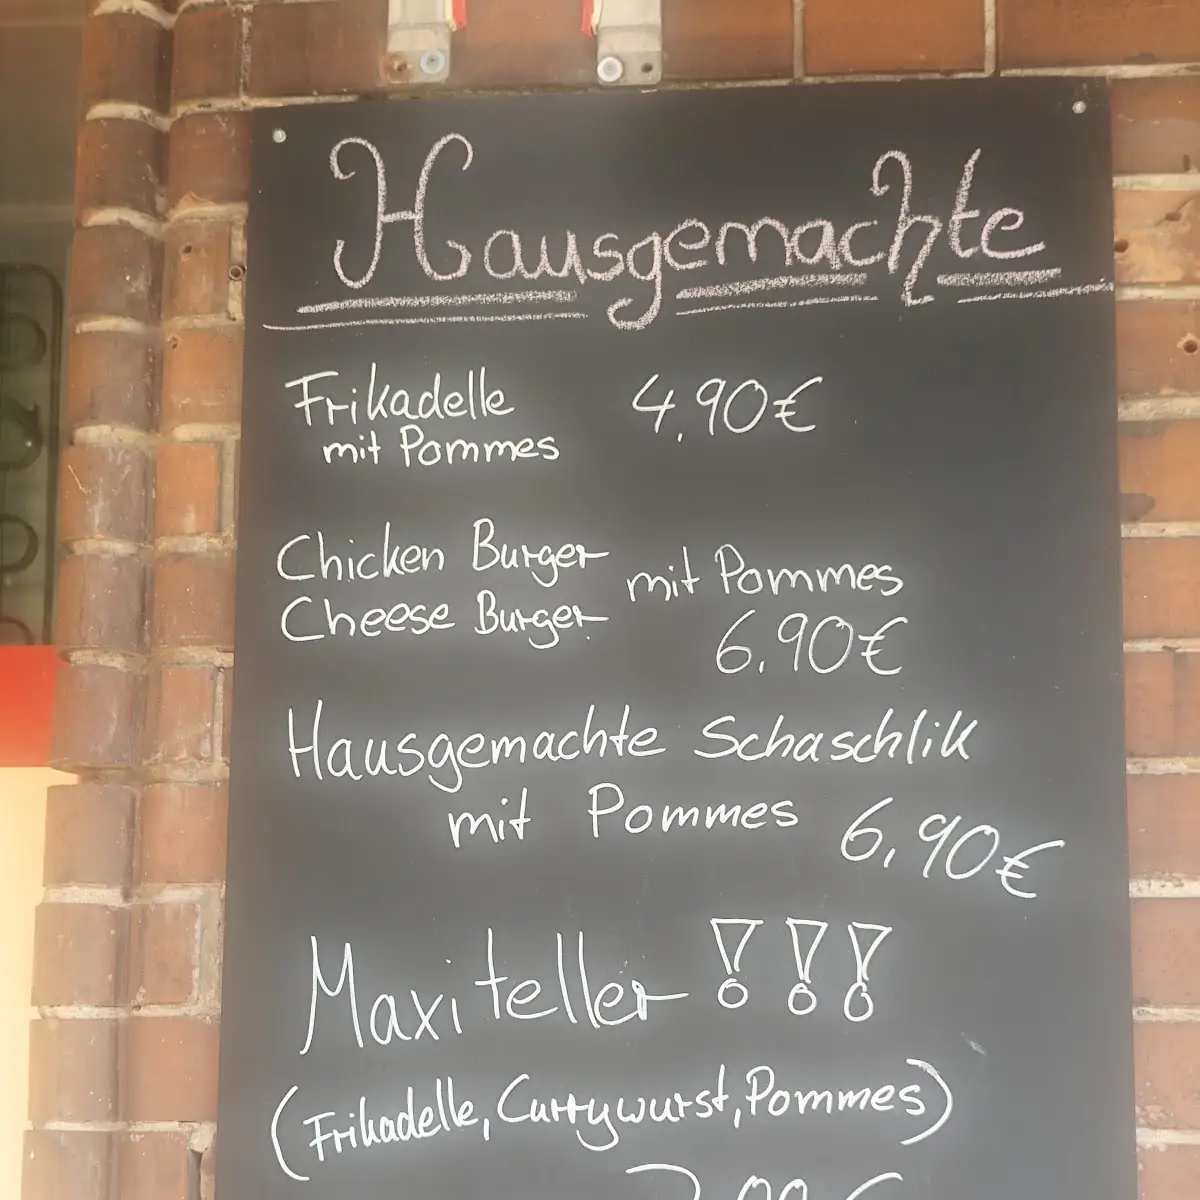 Hausgemachte
Frikadelle 4,90€
mit Pommes
Chicken Burger mit Pommes
Cheese Burger 6,90€
Hausgemachte Schaschlik
mit Pommes 6,90€
Maxi teller !!!
(Frikadelle, Currywurst, Pommes)